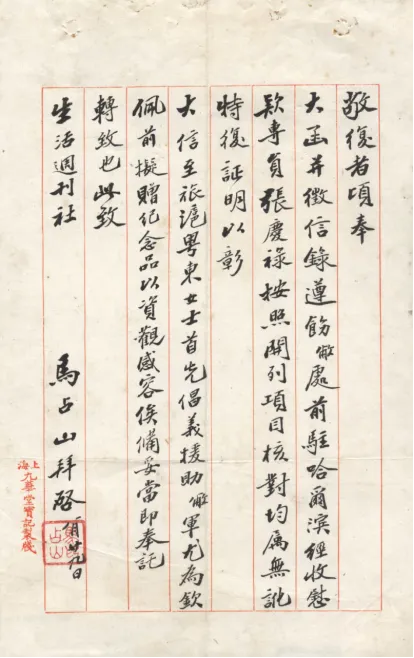 敬復者頃奉
大函并徵信錄遵飭敝處前駐哈爾濱經收慰
欵專員張慶祿按照開列項目核對均屬無訛
特復証明以彰
大信至旅滬粤東女士首先倡義援助敝軍尤為欽
佩前擬贈紀念品以資觀感容俟備妥當即奉託
轉致也此致
生活週刊社
馬占山拜啓 一月廿九日
上海九華堂寶記製牋